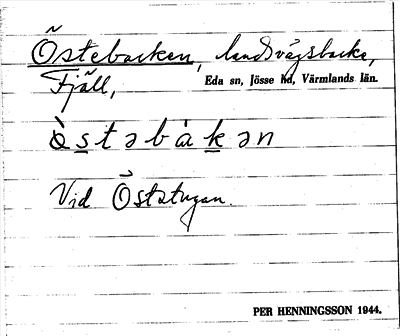 Östebacken, landsvägsbacke,
Fjäll, Eda sn, Jösse hd, Värmlands län.
ò̀stəbàkən
Vid Öststugan.
PER HENNINGSSON 1944.